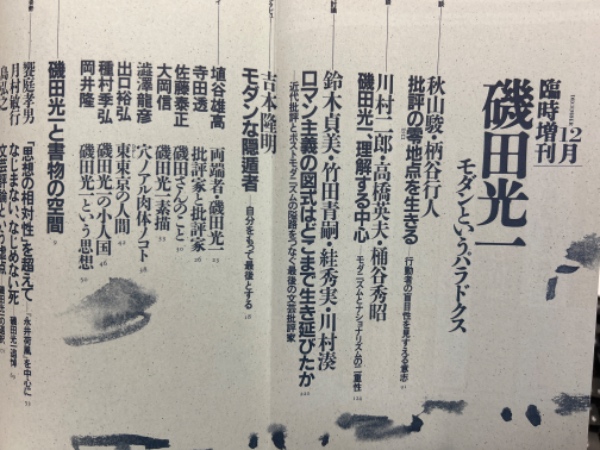 臨時増刊
DECEMBER
12月
磯田光一
モダンというパラドクス
秋山駿・柄谷行人
批評の零地点を生きる
行動者の盲目性を見すえる意志
川村二郎・高橋英夫・桶谷秀昭
磯田光一、理解する中心
モダニズムとナショナリズムの二重性
鈴木貞美・竹田青嗣・絓秀実・川村湊
ロマン主義の図式はどこまで生き延びたか
近代批評とポストモダニズムの隘路をつなぐ最後の文芸批評家
吉本隆明
モダンな隠遁者
自分をもって最後とする
埴谷雄高
両端者・磯田光一
寺田透
批評家と批評家
佐藤泰正
磯田さんのこと
大岡信
磯田光一素描
澁澤龍彦
穴ノアル肉体ノコト
出口裕弘
東東京の人間
種村季弘
磯田光一の小人国
岡井隆
磯田光一という思想
磯田光一と書物の空間
饗庭孝男
「思想の相対性」を超えて
「永井荷風」を中心に
月村敏行
なじまない、なじめない死
磯田光一追悼